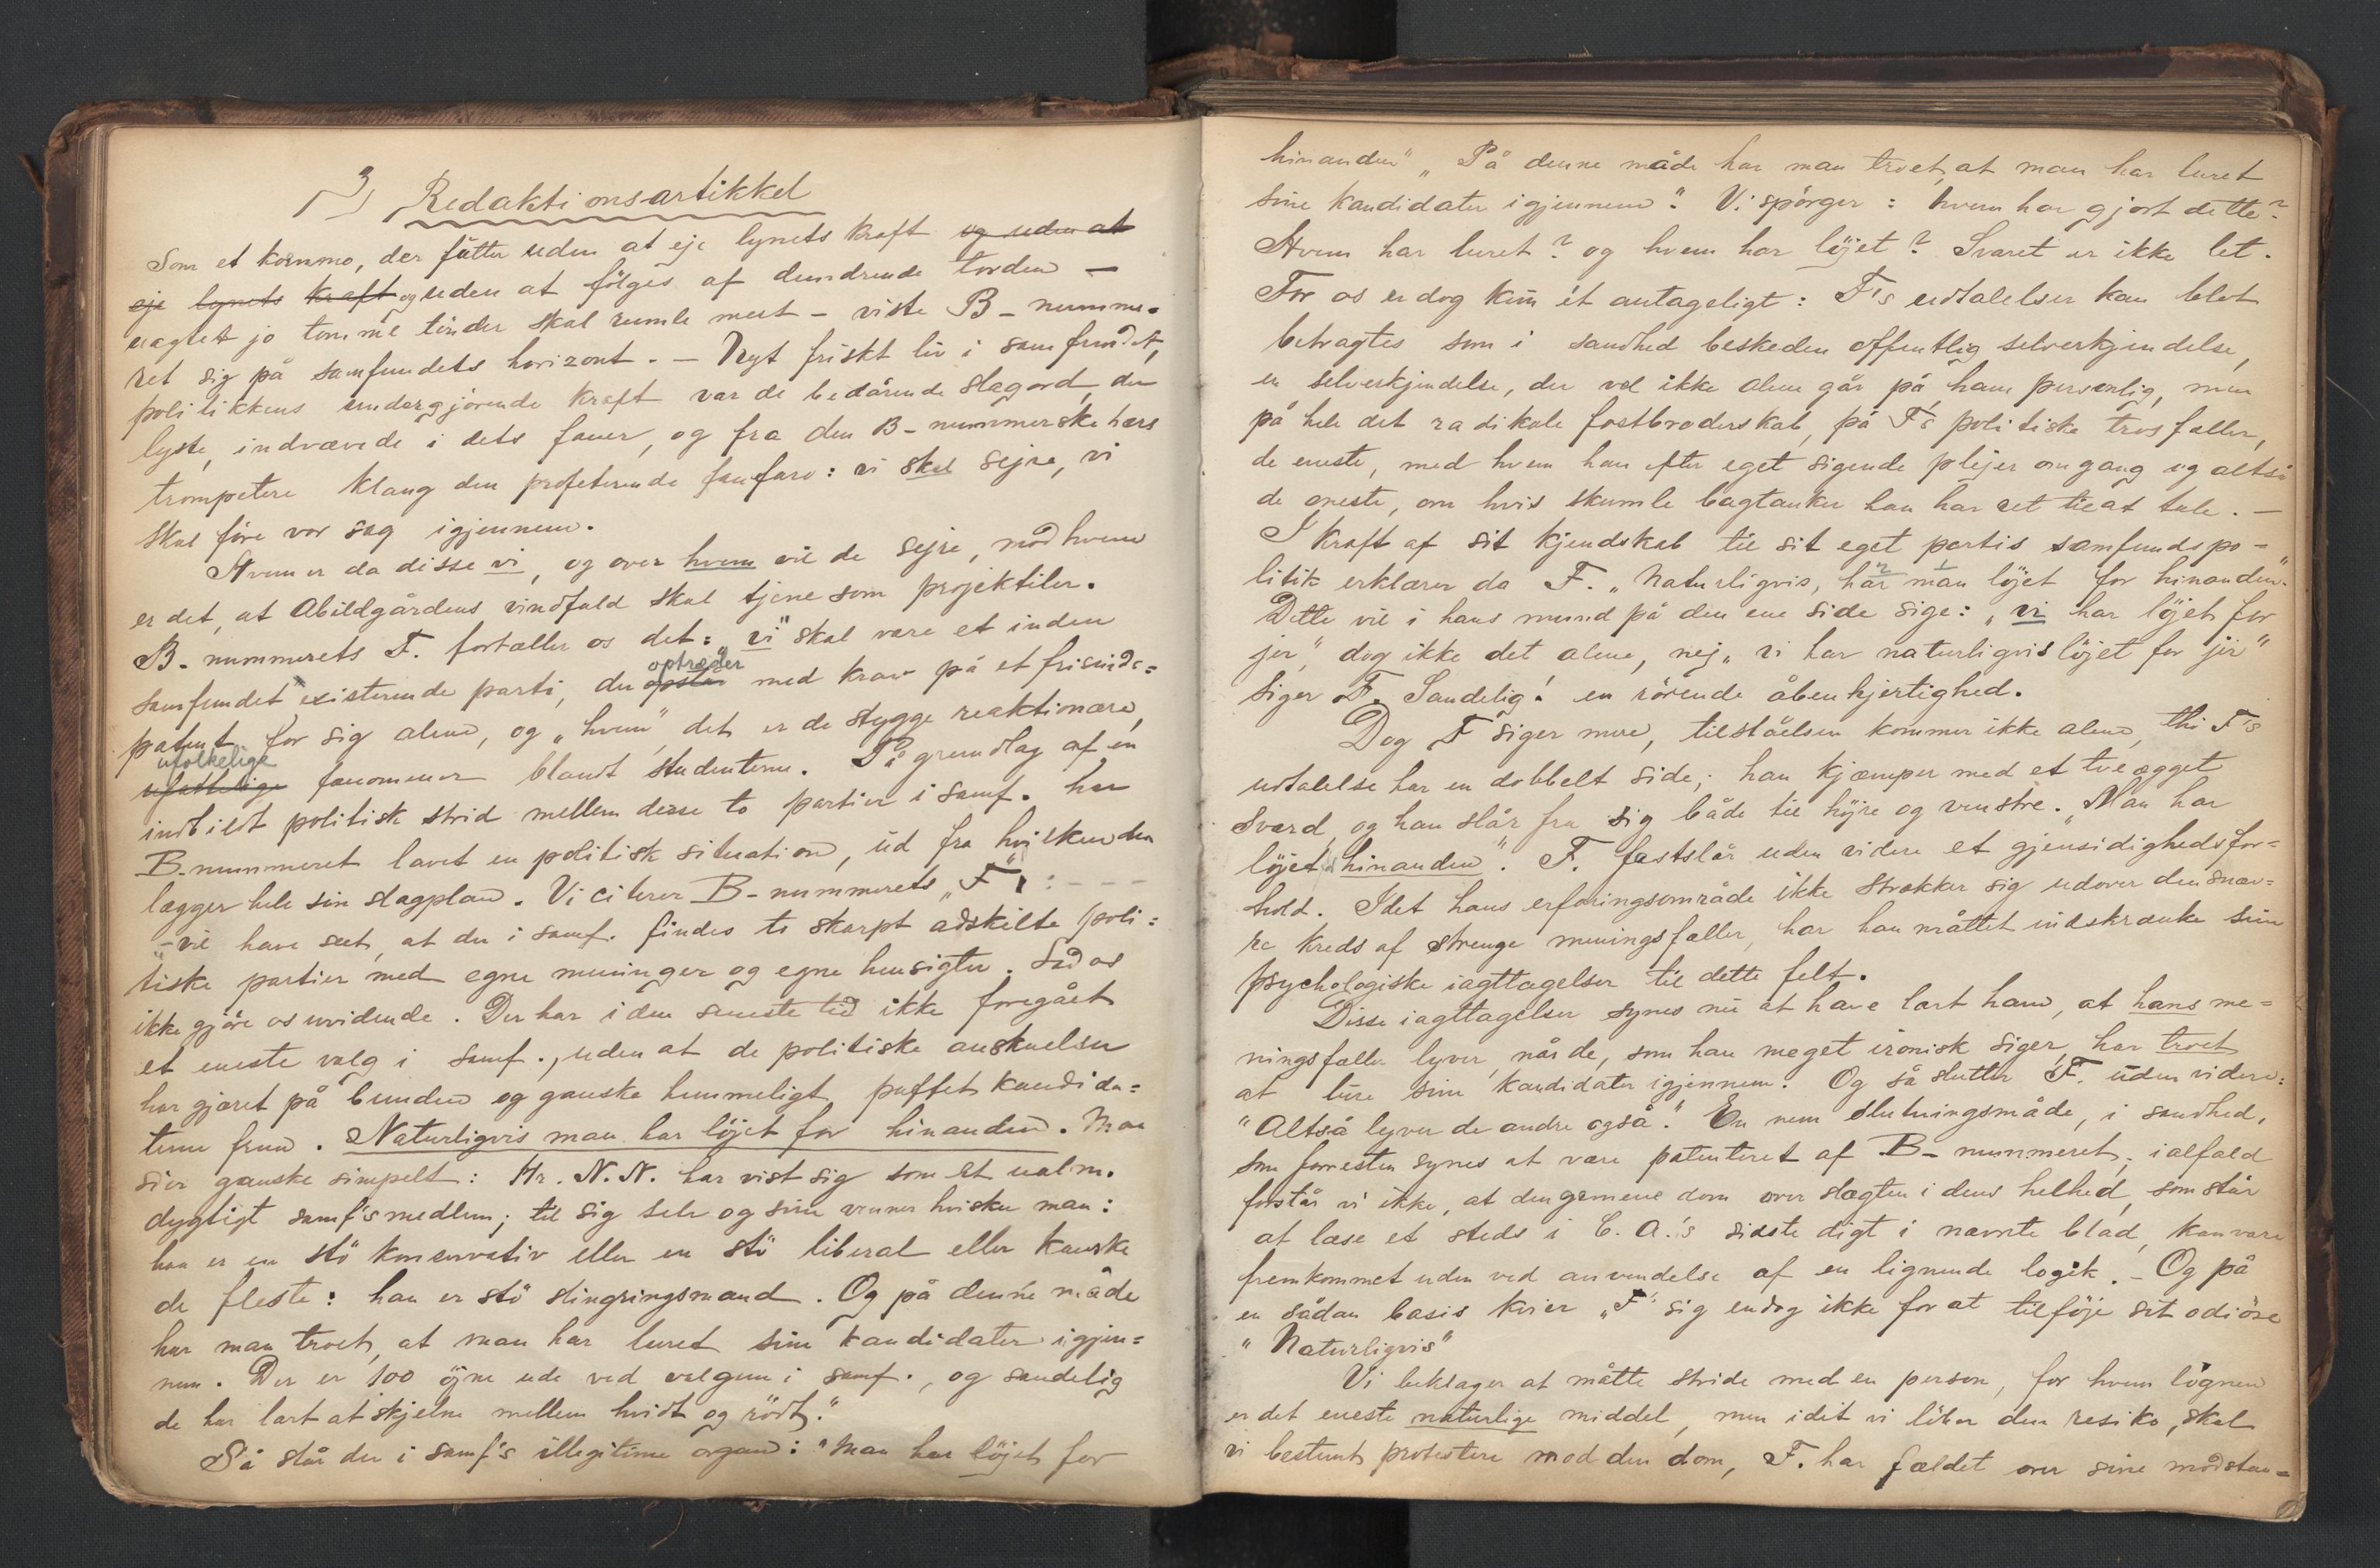 3) Redaktionsartikkel
Som et kornmo, der futter uden at eje lynets kraft og uden at
eje lynets kraft og uden at fölges af dundrende torden —
uagtet jo tomme tönder skal rumle mest – viste B – numme-
ret sig på samfundets horizont. – Nyt friskt liv i samfundet,
politikkens undergjörende kraft var de bedårende slagord, der
lyste, indvævede i dets faner, og fra den B – nummerske hærs
trompetere klang den profeterende fanfare: vi skal sejre, vi
skal före vor sag igjennem.
Hvem er da disse vi, og over hvem vil de sejre, mod hvem
er det, at Abildgårdens vindfald skal tjene som projektiler.
B – nummerets F. fortæller os det: "vi" skal være et inden
optræder
samfundet existerende parti, der opstår med krav på et frisinds=
patent for sig alene, og „hvem" det er de stygge reaktionære,
ufolkelige
fænomener blandt studenterne. På grundlag af en
indbildt politisk strid mellem disse to partier i samf. har
B-nummeret lavet en politisk situation, ud fra hvilken den
lægger hele sin slagplan. Vi citerer B – nummerets „F": – – –
„– vil have set, at der i samf. findes to skarpt adskilte poli=
tiske partier med egne meninger og egne hensigter. Lad os
ikke gjöre os uvidende. Der har i den seneste tid ikke foregået
et eneste valg i samf., uden at de politiske anskuelser
har gjæret på bunden og ganske hemmeligt puffet kandida=
terne frem. Naturligvis man har löjet for hinanden. Man
sier ganske simpelt: Hr. N.N. har vist sig som et ualm.
dygtigt samf's medlem; til sig selv og sine venner hvisker man:
han er en stö konservativ eller en stö liberal eller kanske
de fleste: han er stö slingringsmand. Og på denne måde
har man troet, at man har luret sine kandidater igjen=
nem. Der er 100 öjne ude ved valgene i samf., og sandelig
de har lært at skjelne mellem hvidt og rödt."
Så står der i samf's illegitime organ: "Man har löjet for
hinanden" „På denne måde har man troet, at man har luret
sine kandidater igjennem". Vi spörger: hvem har gjort dette?
Hvem har luret? og hvem har löjet? Svaret er ikke let.
For os er dog kun ét antageligt: F's udtalelser kan blot
betragtes som i sandhed beskeden offentlig selverkjendelse,
en selverkjendelse, der vel ikke alene går på ham personlig, men
på hele det radikale fostbroderskab, på F's politiske trosfæller,
de eneste, med hvem han efter eget sigende plejer omgang og altså
de eneste, om hvis skumle bagtanker han har ret til at tale. –
I kraft af sit kjendskab til sit eget partis samfundspo=
litik erklærer da F. „Naturligvis, har man löjet for hinanden".
Dette vil i hans mund på den ene side sige: „vi har löjet for
jer", dog ikke det alene, nej „vi har naturligvis löjet for jer"
siger F. Sandelig! en rörende åbenhjertighed.
Dog F siger mere, tilståelsen kommer ikke alene, thi F's
udtalelse har en dobbelt side; han kjæmper med et tveægget
sværd, og han slår fra sig både til höjre og venstre. „Man har
löjet hinanden". F. fastslår uden videre et gjensidighedsfor=
hold. Idet hans erfaringsområde ikke strækker sig udover den snæv=
re kreds af strenge meningsfæller, har han måttet indskrænke sine
psychologiske iagttagelser til dette felt.
Disse iagttagelser synes nu at have lært ham, at hans me=
ningsfæller lyver, når de, som han meget ironisk siger, har troet
at lure sine kandidater igjennem. Og så slutter F. uden videre:
"Altså lyver de andre også". En nem slutningsmåde, i sandhed,
som forresten synes at være patenteret af B – nummeret; ialfald
forstår vi ikke, at den gemene dom over slægten i dens helhed, som står
at læse et steds i C. A.'s sidste digt i nævnte blad, kan være
fremkommet uden ved anvendelse af en lignende logik. – Og på
en sådan basis kvier „F" sig endog ikke for at tilföje sit odiöse
"Naturligvis"
Vi beklager at måtte stride med en person, for hvem lögnen
er det eneste naturlige middel, men idet vi löber den resiko, skal
vi bestemt protestere mod den dom, F. har fældet over sine modstan=